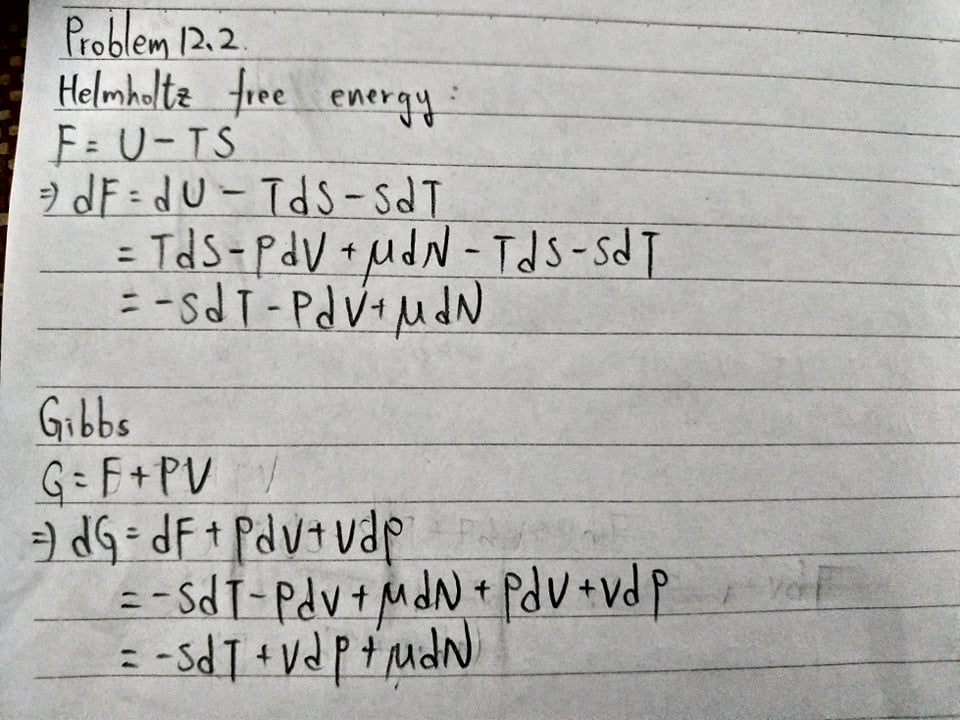 Problem 12.2.
Helmholtz free energy:
F = U - TS
⇒ dF = dU - TdS - SdT
= TdS - PdV + μdN - TdS - SdT
= -SdT - PdV + μdN
Gibbs
G = F + PV
⇒ dG = dF + PdV + VdP
= -SdT - PdV + μdN + PdV + VdP
= -SdT + VdP + μdN